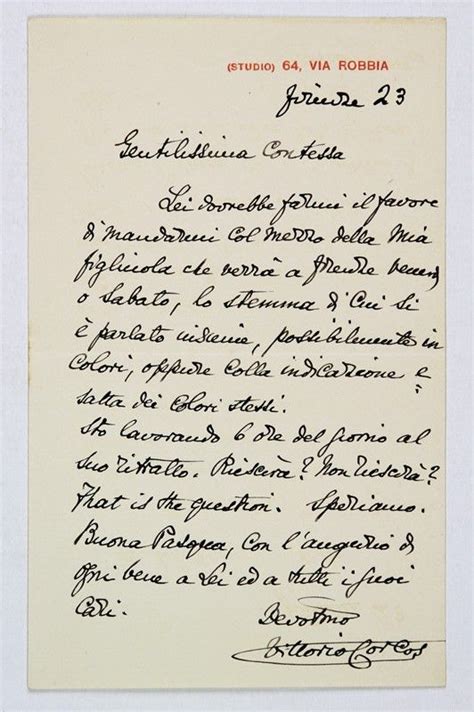 (STUDIO) 64, VIA ROBBIA
Firenze 23
Gentilissima Contessa
Lei dovrebbe farmi il favore
di mandarmi col mezzo della mia
figliuola che verrà a Firenze venerdì
o Sabato, lo stemma di cui si
è parlato insieme, possibilmente in
colori, oppure colla indicazione e=
satta dei colori stessi.
Sto lavorando 6 ore del giorno al
suo ritratto. Riescirà? Non riescirà?
That is the question. Speriamo.
Buona Pasqua, con l'augurio di
ogni bene a Lei ed a tutti i suoi
cari.
Devotmo
Vittorio Corcos